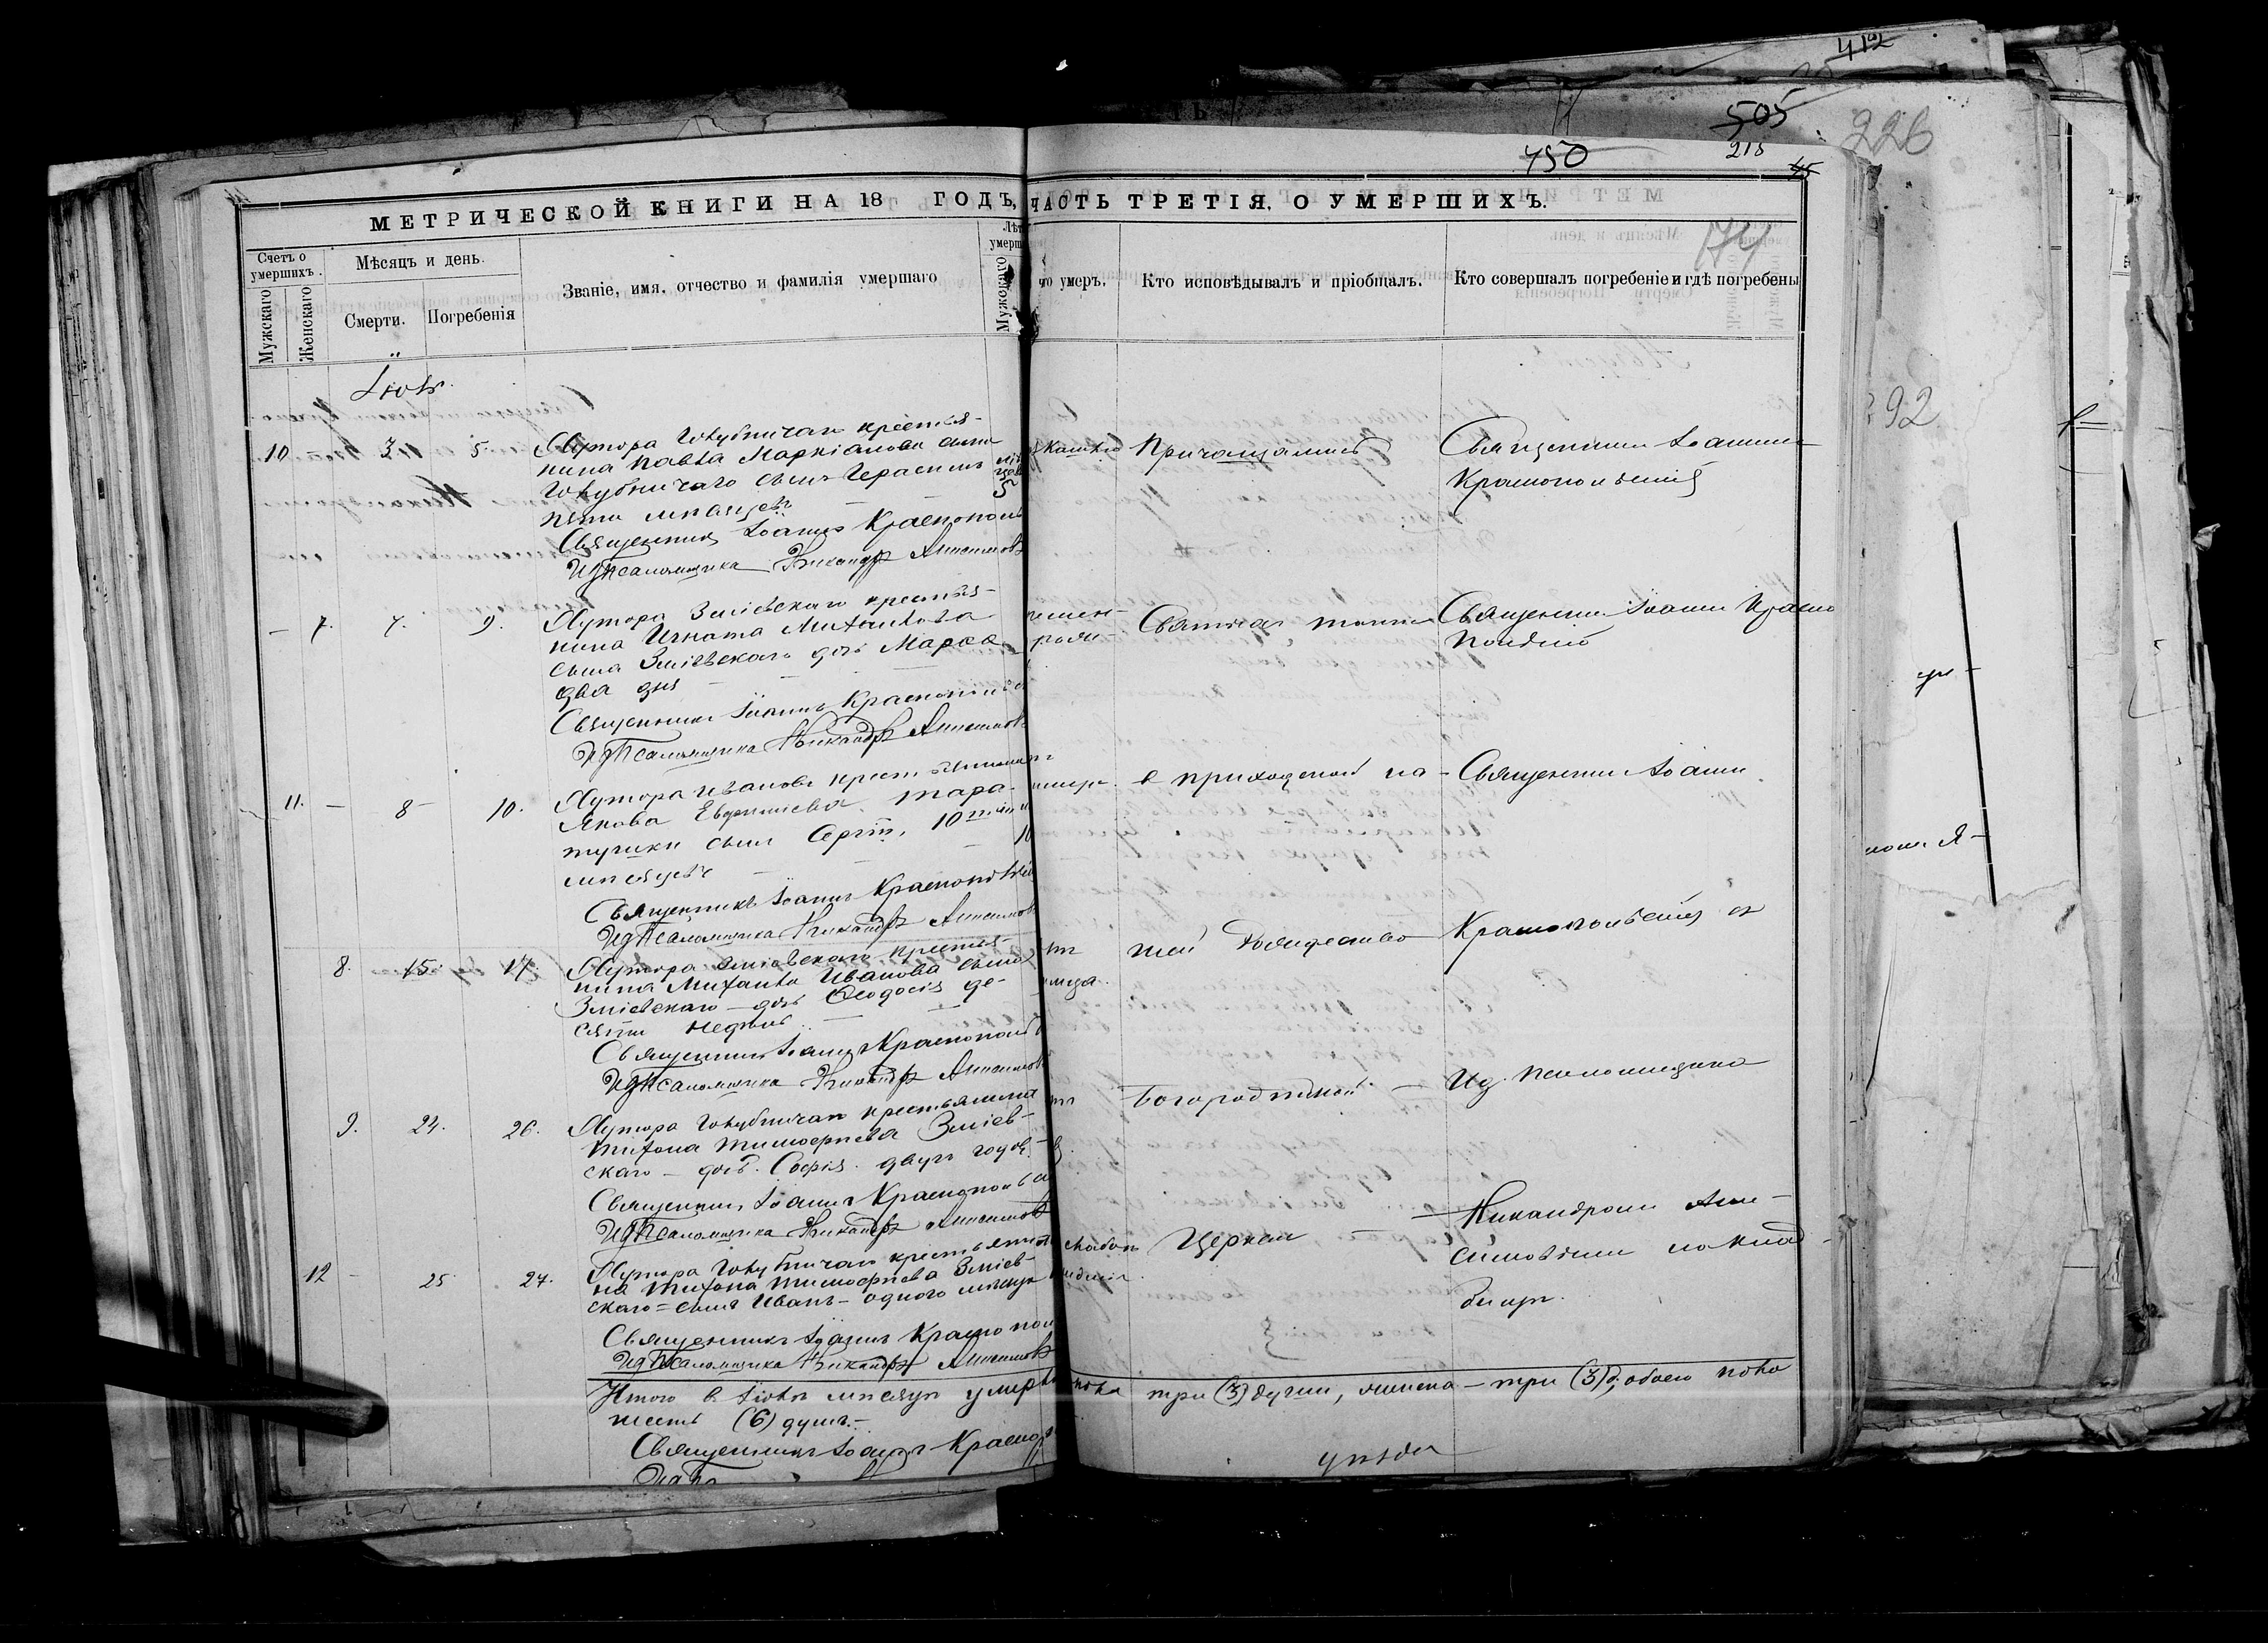 412
505
450
218
45
226
МЕТРИЧЕСКОЙ КНИГИ НА 18 ГОДЪ, ЧАСТЬ ТРЕТІЯ, О УМЕРШИХЪ.
174
Счетъ о умершихъ.
Мужскаго
Женскаго
Мѣсяцъ и день.
Смерти.
Погребенія
Званіе, имя, отчество и фамилія умершаго
Лѣт
умерш
Мужского
его умеръ.
Кто исповѣдывалъ и пріобщалъ.
Кто совершалъ погребеніе и гдѣ погребены
Іюль.
292
10 3 5 Хутора Голубничаго крестья-
нина Павла Маркіанова сына
Голубничаго сынъ Герасимъ
пяти мѣсяцевъ
5
Священникъ Іоаннъ Краснополь
Ид Псаломщика Никандръ Анисимовъ
Причащались
Священникъ Іоаннъ
Краснопольскій
- 7. 7. 9. Хутора Зміевскаго крестья-
нина Игната Михайлова
сына Зміевскаго дочь Марѳа
два дня
Священникъ Іоаннъ Краснополь
Ид Псаломщика Никандръ Анисимовъ
Святыхъ таинъ
Священникъ Іоаннъ Красно
11. - 8 10. Хутора Иванова крестьянина
Якова Евфиміева Тара-
сынъ Сергій, 10ти
мѣсяцевъ
10
Священникъ Іоаннъ Краснопольскій
Ид Псаломщика Никандръ Анисимовъ
в приходской на-
Священникъ Іоаннъ
8. 15. 17. Хутора Зміевскаго крестья-
нина Михаила Иванова сына
Зміевскаго - дочь Ѳеодосія де-
сяти недѣль
Священникъ Іоаннъ Краснополь
Ид Псаломщика Никандръ Анисимовъ
шей Рождество
Краснопольскій и
9. 24. 26. Хутора Голубничаго крестьянина
Тихона Тимофеева Зміев-
скаго - дочь. Софія. двухъ годовъ
Священникъ Іоаннъ Краснополь
Ид Псаломщика Никандръ Анисимовъ
Богородичной -
Ид. Псаломщика
12 - 25 27. Хутора Голубничаго крестьяни
на Тихона Тимофеева Зміев-
скаго = сынъ Иванъ - одного мѣсяца
Священникъ Іоаннъ Краснопол
Ид Псаломщика Никандръ Анисимовъ
Церкви
- Никандромъ Ани-
симовымъ на клад-
бищѣ.
Итого в Іюлѣ мѣсяцѣ умерло пола три (3) души, женска - три (3), обоего пола
шесть (6) душъ. -
Священникъ Іоаннъ Красноп
уѣзда